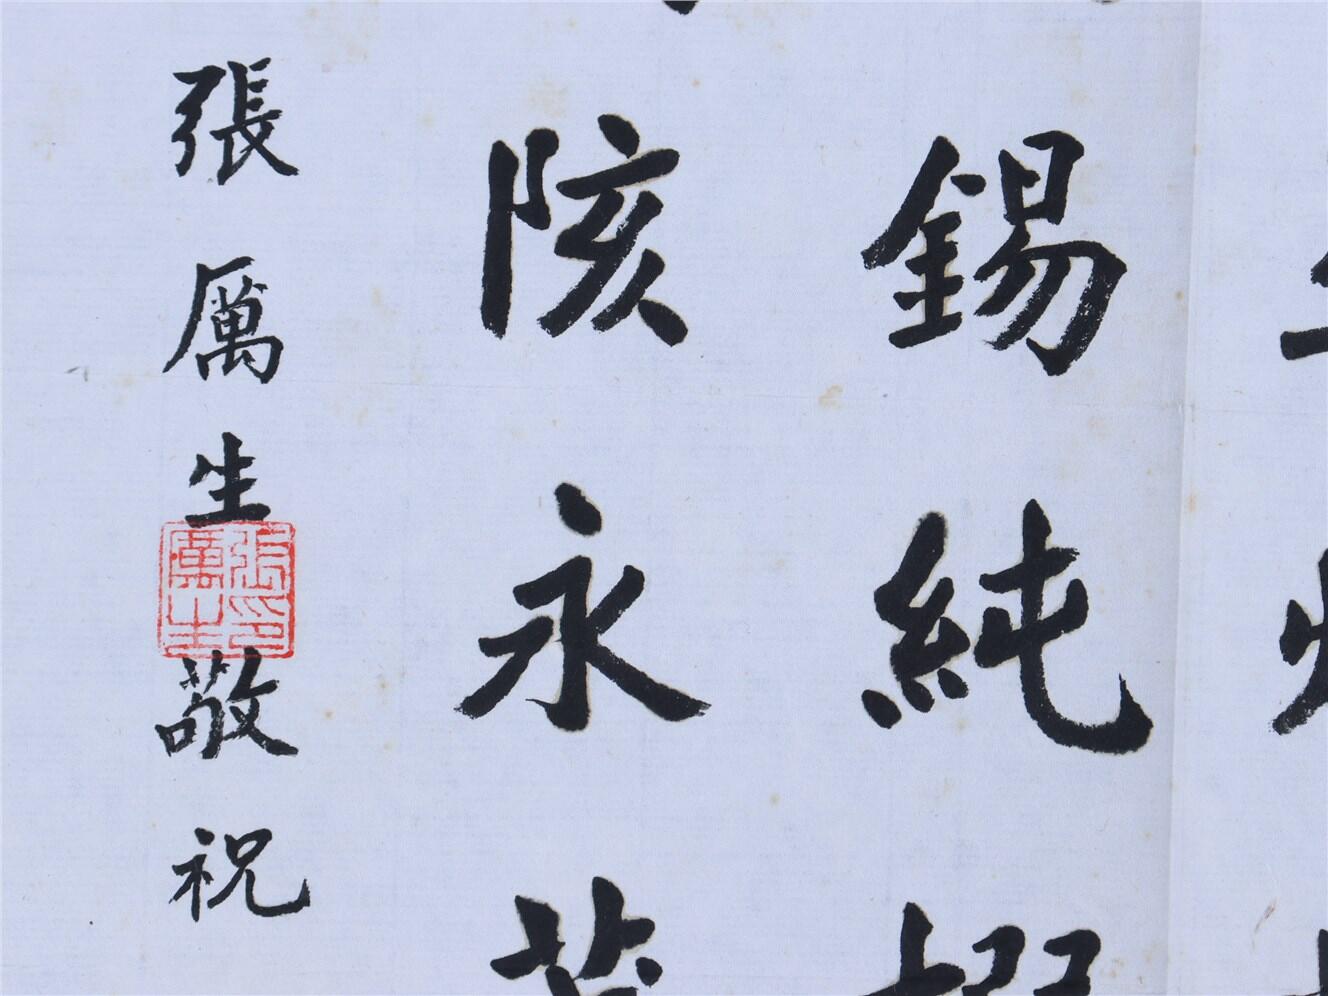 錫純
陔永
張厲生敬祝
張厲生印